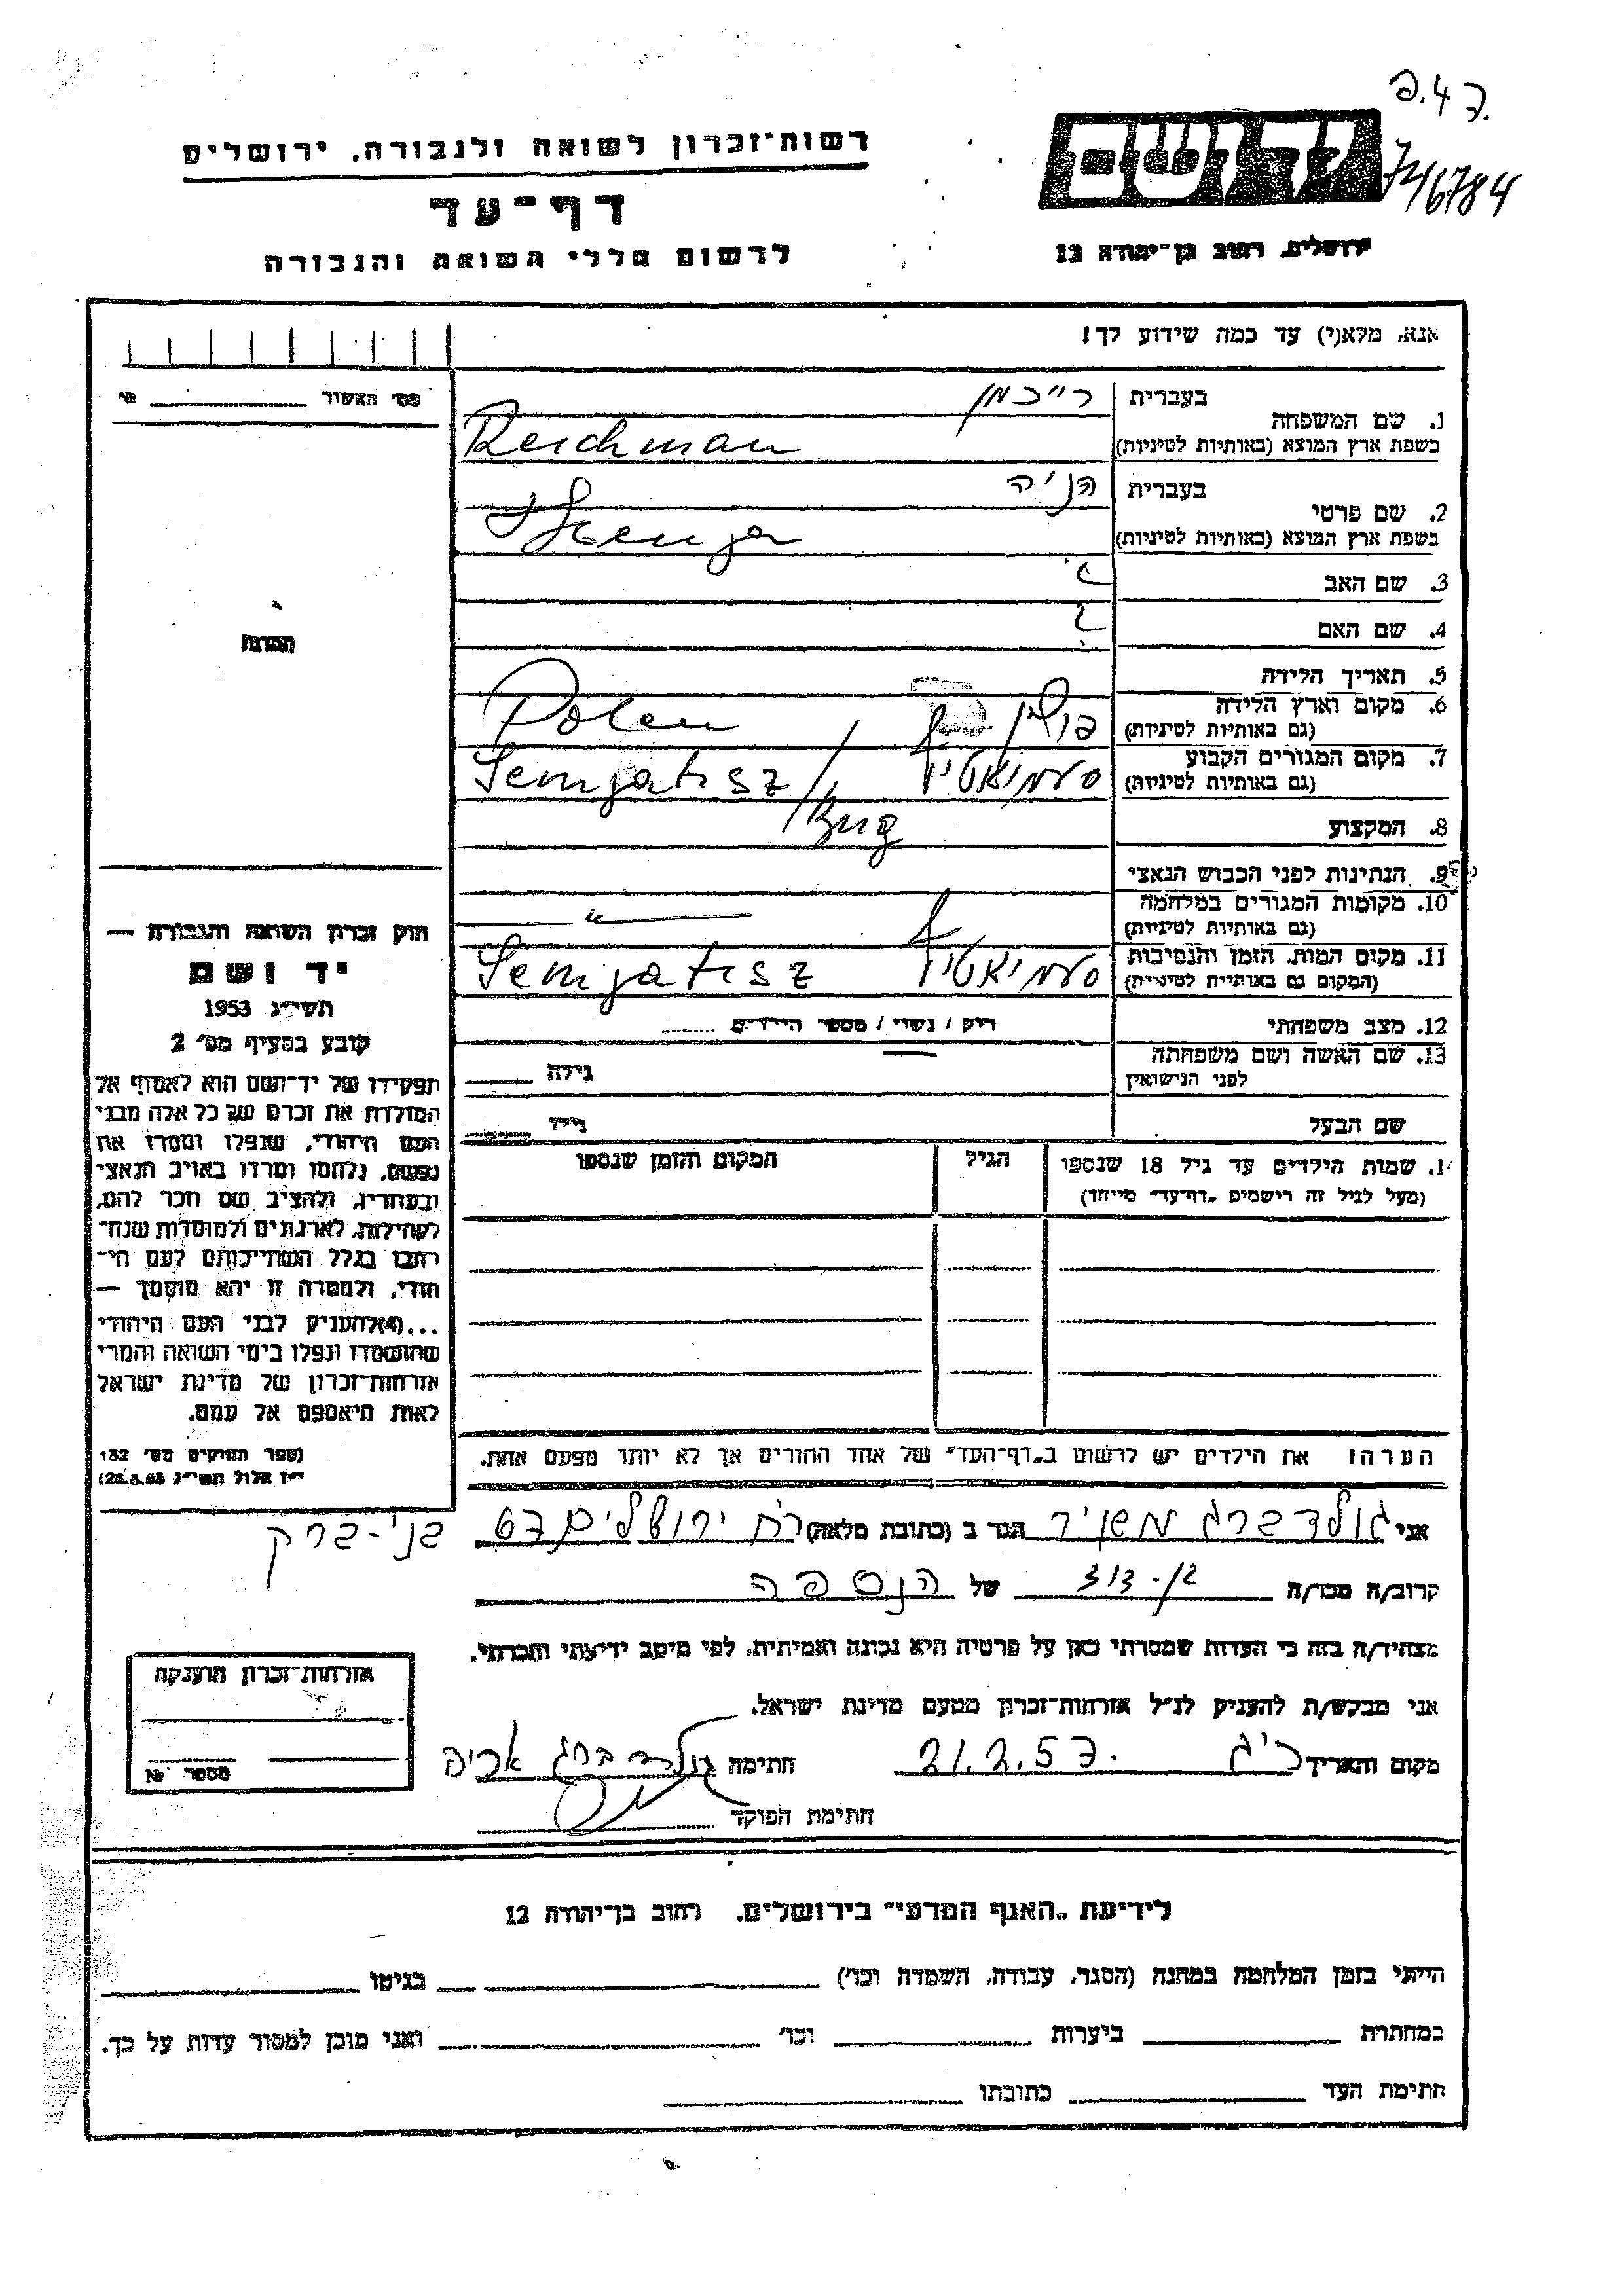 פ.47.
יד ושם
74/6784
רשות־זכרון לשואה ולגבורה, ירושלים
דף־עד
לרשום חללי השואה והגבורה
ירושלים, רחוב בן־יהודה 12
אנא, מלא(י) עד כמה שידוע לך!
מס׳ האשור
בעברית רייכמן
1. שם המשפחה
בשפת ארץ המוצא (באותיות לטיניות) Reichman
בעברית הניה
2. שם פרטי
בשפת ארץ המוצא (באותיות לטיניות) Henja
3. שם האב
4. שם האם
תמונה
5. תאריך הלידה
6. מקום וארץ הלידה
(גם באותיות לטיניות) פולין Polen
7. מקום המגורים הקבוע
(גם באותיות לטיניות) סעמיאטיץ Semjatisz /Bug
8. המקצוע
9. הנתינות לפני הכבוש הנאצי
10. מקומות המגורים במלחמה
(גם באותיות לטיניות) — " —
11. מקום המות, הזמן והנסיבות
(המקום גם באותיות לטיניות) סעמיאטיץ Semjatisz
12. מצב משפחתי רוק / נשוי / מספר הילדים
13. שם האשה ושם משפחתה
לפני הנישואין גילה
שם הבעל גילו
14. שמות הילדים עד גיל 18 שנספו הגיל המקום והזמן שנספו
(מעל לגיל זה רישמים „דף־עד״ מייחד)
הערה: את הילדים יש לרשום ב„דף־העד״ של אחד ההורים אך לא יותר מפעם אחת.
חוק זכרון השואה והגבורה —
יד ושם
תשי״ג 1953
קובע בסעיף מס׳ 2
תפקידו של יד־ושם הוא לאסוף אל
המולדת את זכרם של כל אלה מבני
העם היהודי, שנפלו ומסרו את
נפשם, נלחמו ומרדו באויב הנאצי
ובעוזריו, ולהציב שם וזכר להם,
לקהילות, לארגונים ולמוסדות שנח־
רבו בגלל השתייכותם לעם הי־
הודי, ולמטרה זו יהא מוסמך —
...(4) להעניק לבני העם היהודי
שהושמדו ונפלו בימי השואה והמרי
אזרחות־זכרון של מדינת ישראל
לאות היאספם אל עמם.
(ספר החוקים מס׳ 132
י״ז אלול תשי״ג 28.8.53)
אני גולדברג מאיר הגר ב (כתובת מלאה) רח׳ ירושלים 67 בני-ברק
קרוב/ה מכר/ה בן-דוד של הנספה
מצהיר/ה בזה כי העדות שמסרתי כאן על פרטיה היא נכונה ואמיתית, לפי מיטב ידיעתי והכרתי.
אני מבקש/ת להעניק לנ״ל אזרחות־זכרון מטעם מדינת ישראל.
מקום ותאריך 21.2.57. חתימה גולדברג
חתימת הפוקד
אזרחות־זכרון הוענקה
מספר
לידיעת „האגף המדעי״ בירושלים, רחוב בן־יהודה 12
הייתי בזמן המלחמה במחנה (הסגר, עבודה, השמדה וכו׳) בגיטו
במחתרת ביערות וכו׳ ואני מוכן למסור עדות על כך.
חתימת העד כתובתו